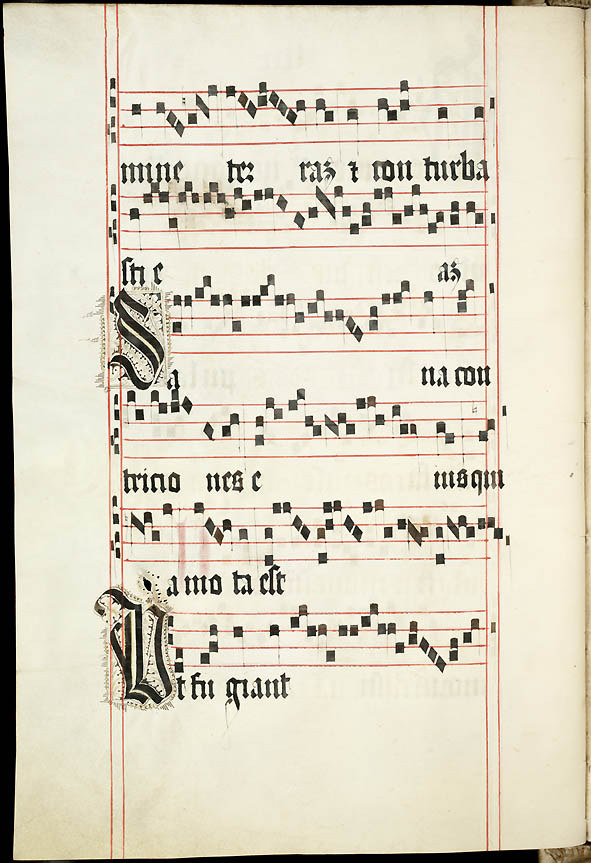 mine ter raʒ ⁊ con turba
sti e aʒ
Sa na con
tricio nes e ius qui
a mo ta est
Vt fu giant